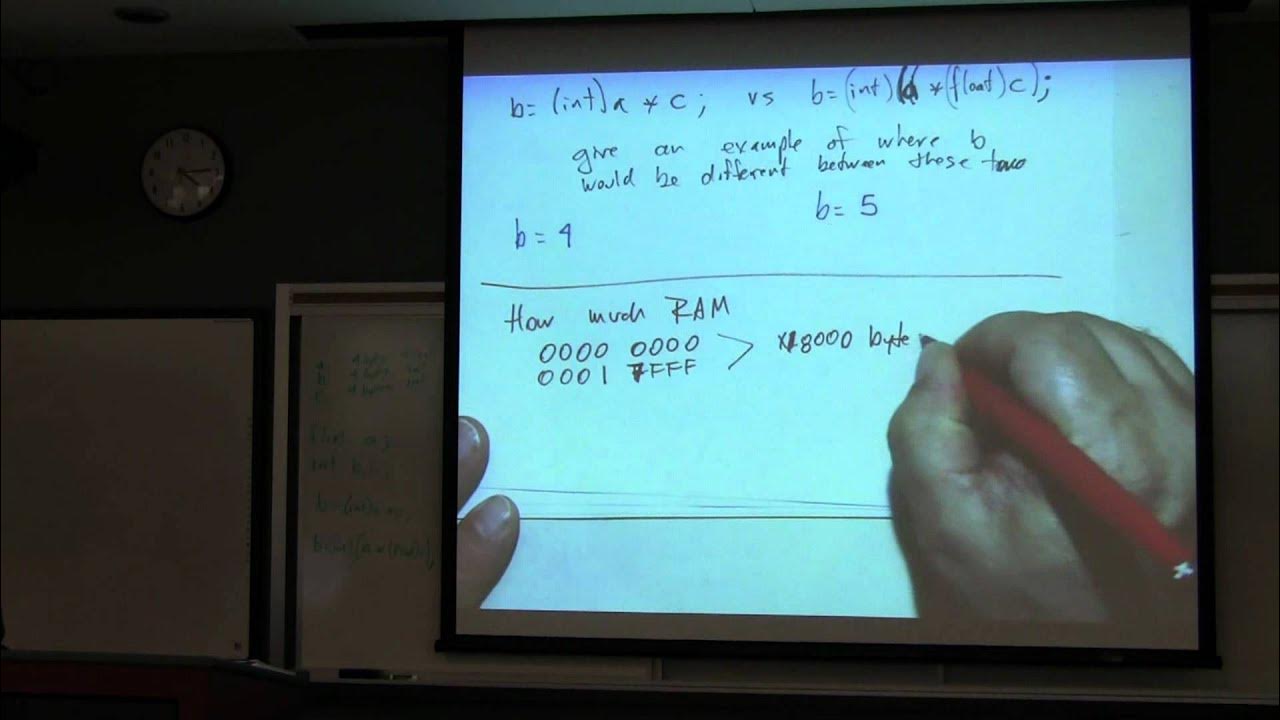 b= (int)a * c ; vs b=(int)(a *(float)c);
give an example of where b
would be different between these two
b= 5
b = 4
How much RAM
0000 0000
0001 7FFF
x18000 byte
int b,
b=(int)a